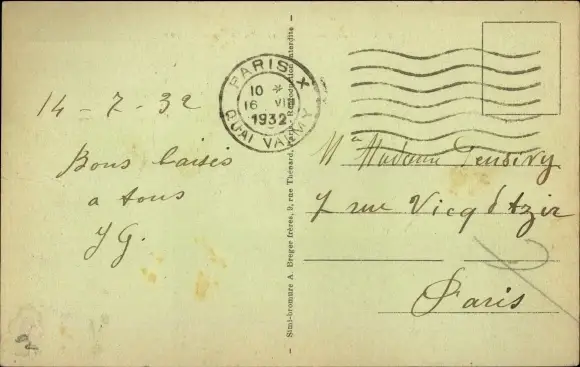 14 - 7 - 32
Bons baisers
a tous
J G.
PARIS X
10 *
16 VII
1932
QUAI VALMY
— Simi-bromure A. Breger frères, 9, rue Thénard, Paris. Reproduction interdite —
Madame
7 rue Vicq d'Azir
Paris